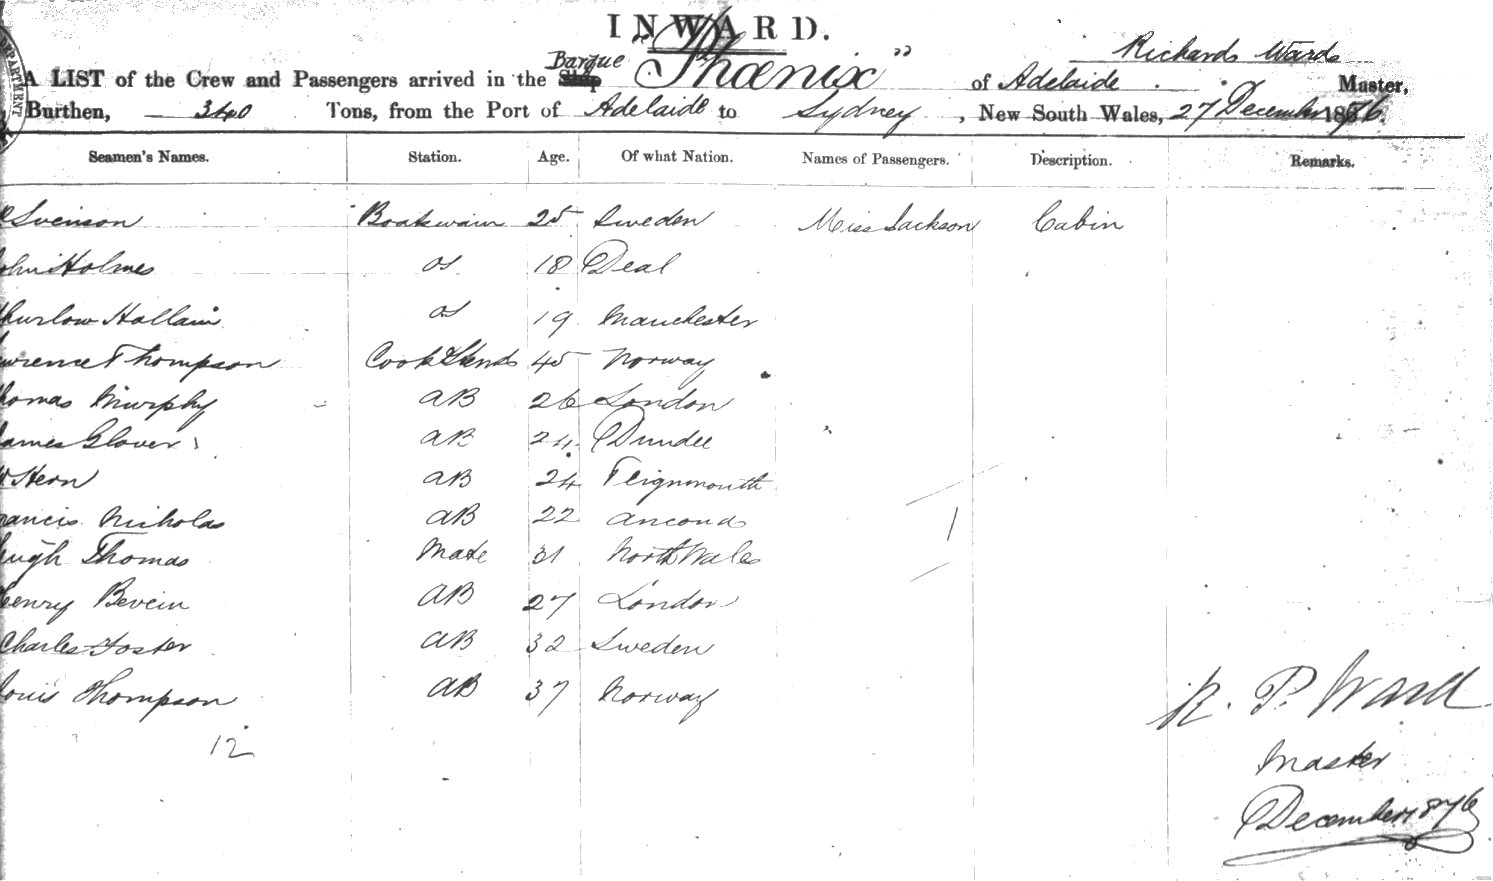 DEPARTMENT
INWARD.
Richards Ward
A LIST of the Crew and Passengers arrived in the Ship Barque "Phœnix" of Adelaide Master,
Burthen, 340 Tons, from the Port of Adelaide to Sydney, New South Wales, 27 December 1876.
Seamen's Names. Station. Age. Of what Nation. Names of Passengers. Description. Remarks.
Svenson Boatswain 25 Sweden Miss Jackson Cabin
John Holmes OS 18 Deal
Thurlow Hallam OS 19 Manchester
Lawrence Thompson Cook & Stewd 45 Norway
Thomas Murphy AB 26 London
James Glover AB 24 Dundee
W Hern AB 24 Teignmouth
Francis Nicholas AB 22 Ancona
Hugh Thomas Mate 31 North Wales
Henry Bevein AB 27 London
Charles Foster AB 32 Sweden
Louis Thompson AB 37 Norway
1
12
R. P. Ward
Master
December 1876